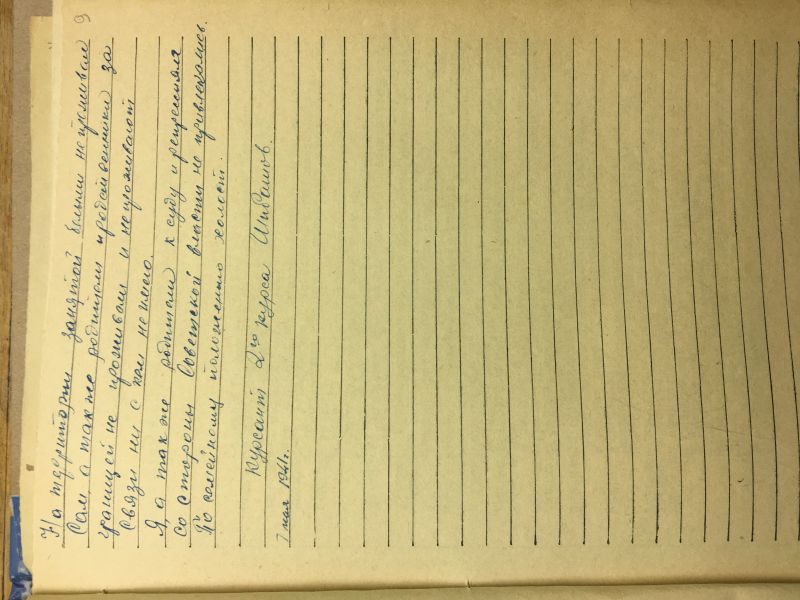 9
На територии занятой белыми не проживал
Сам, а так же родители и родственники за
границей не проживали и не проживают
связи ни с кем не имею.
Я, а так же родители к суду и репрессиям
со стороны Советской власти не привлекались.
По семейному положению холост.
Курсант 2го курса Шибашов.
7 мая 1941г.